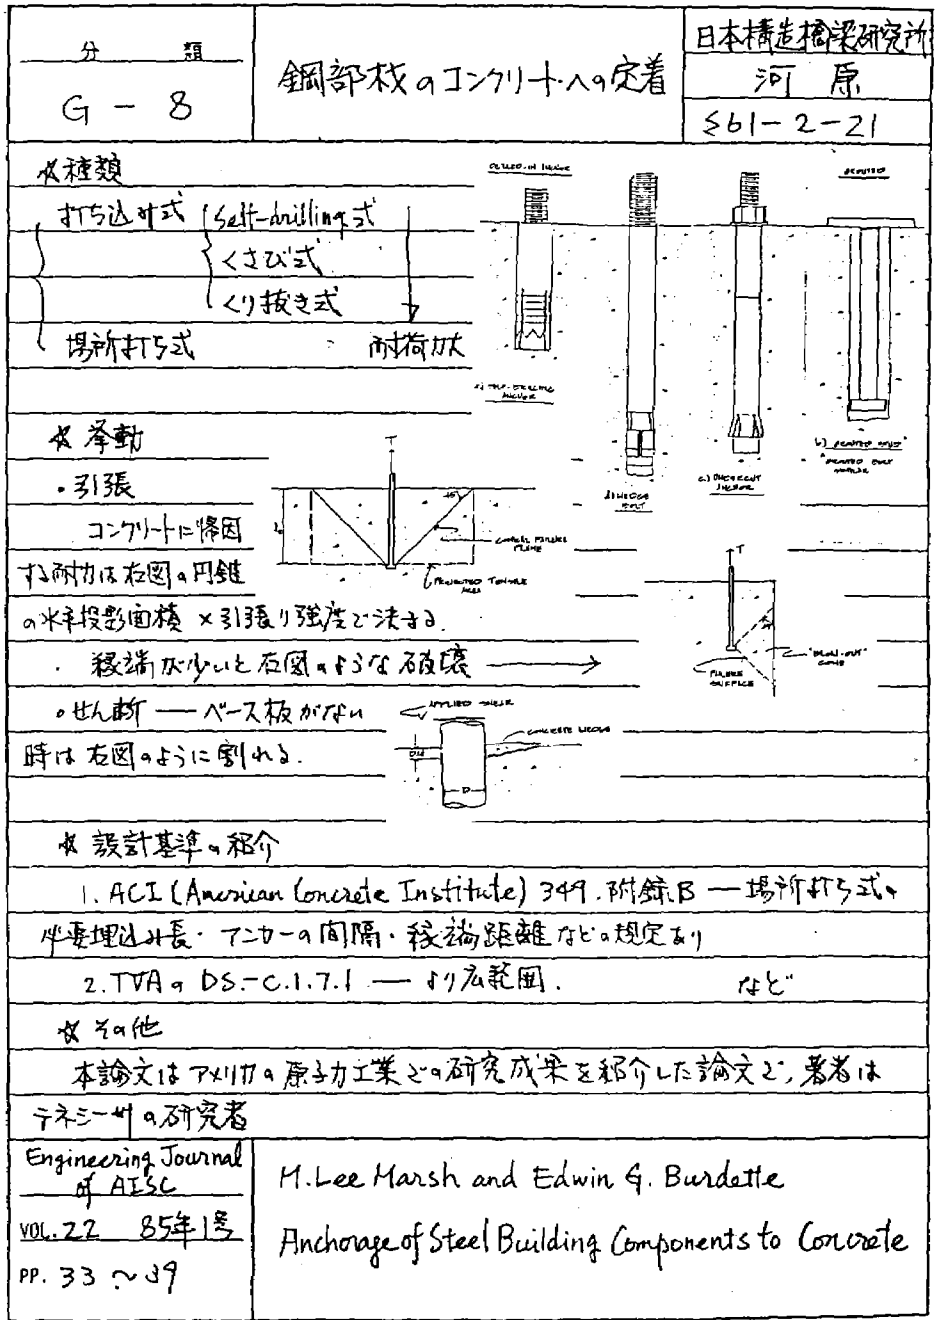 分 類
G - 8
鋼部材のコンクリートへの定着
日本構造橋梁研究所
河 原
S61-2-21
☆種類
打ち込み式 Self-drilling式
くさび式
くり抜き式
場所打ち式 耐荷力大
DRILLED-IN ANCHOR
GROUTED
a) SELF-DRILLING ANCHOR
b) WEDGE BOLT
c) UNDERCUT ANCHOR
☆ 挙動
・引張
コンクリートに帰因
する耐力は右図の円錐
の水平投影面積 × 引張り強度で決まる.
・ 縁端が少いと右図のような破壊
T
45°
CONICAL FAILURE PLANE
PROJECTED TENSILE AREA
T
"BLOW-OUT" CONE
FAILURE SURFACE
・せん断 ── ベース板がない
時は右図のように割れる.
APPLIED SHEAR
CONCRETE WEDGE
D/4
D
☆ 設計基準の紹介
1. ACI (American Concrete Institute) 349. 附録B ― 場所打ち式の
必要埋込み長・アンカーの間隔・縁端距離などの規定あり
2. TVAの DS-C.1.7.1 ── より広範囲. など
☆ その他
本論文はアメリカの原子力工業での研究成果を紹介した論文で, 著者は
テネシー州の研究者
Engineering Journal
of AISC
VOL. 22 85年1号
PP. 33 〜 39
M. Lee Marsh and Edwin G. Burdette
Anchorage of Steel Building Components to Concrete